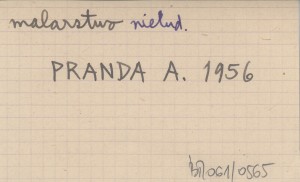 malarstwo nielud.
PRANDA A. 1956
BR061/0565